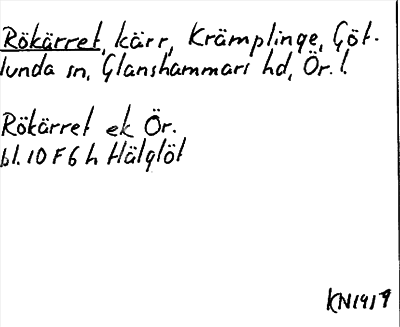 Rökärret, kärr, Krämplinge, Göt-
lunda sn, Glanshammars hd, Ör. l.
Rökärret ek Ör.
bl. 10 F 6 h Hälglöt
KN1919